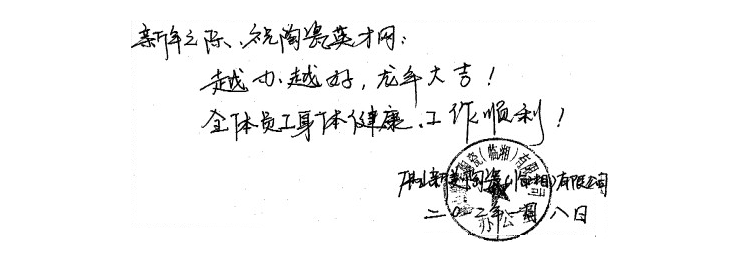 新年之际、祝陶瓷英才网:
越办越好,龙年大吉!
全体员工身体健康、工作顺利!
新美陶瓷(临湘)有限公司
二〇一二年一月八日
陶瓷(临湘)有限公司
办公